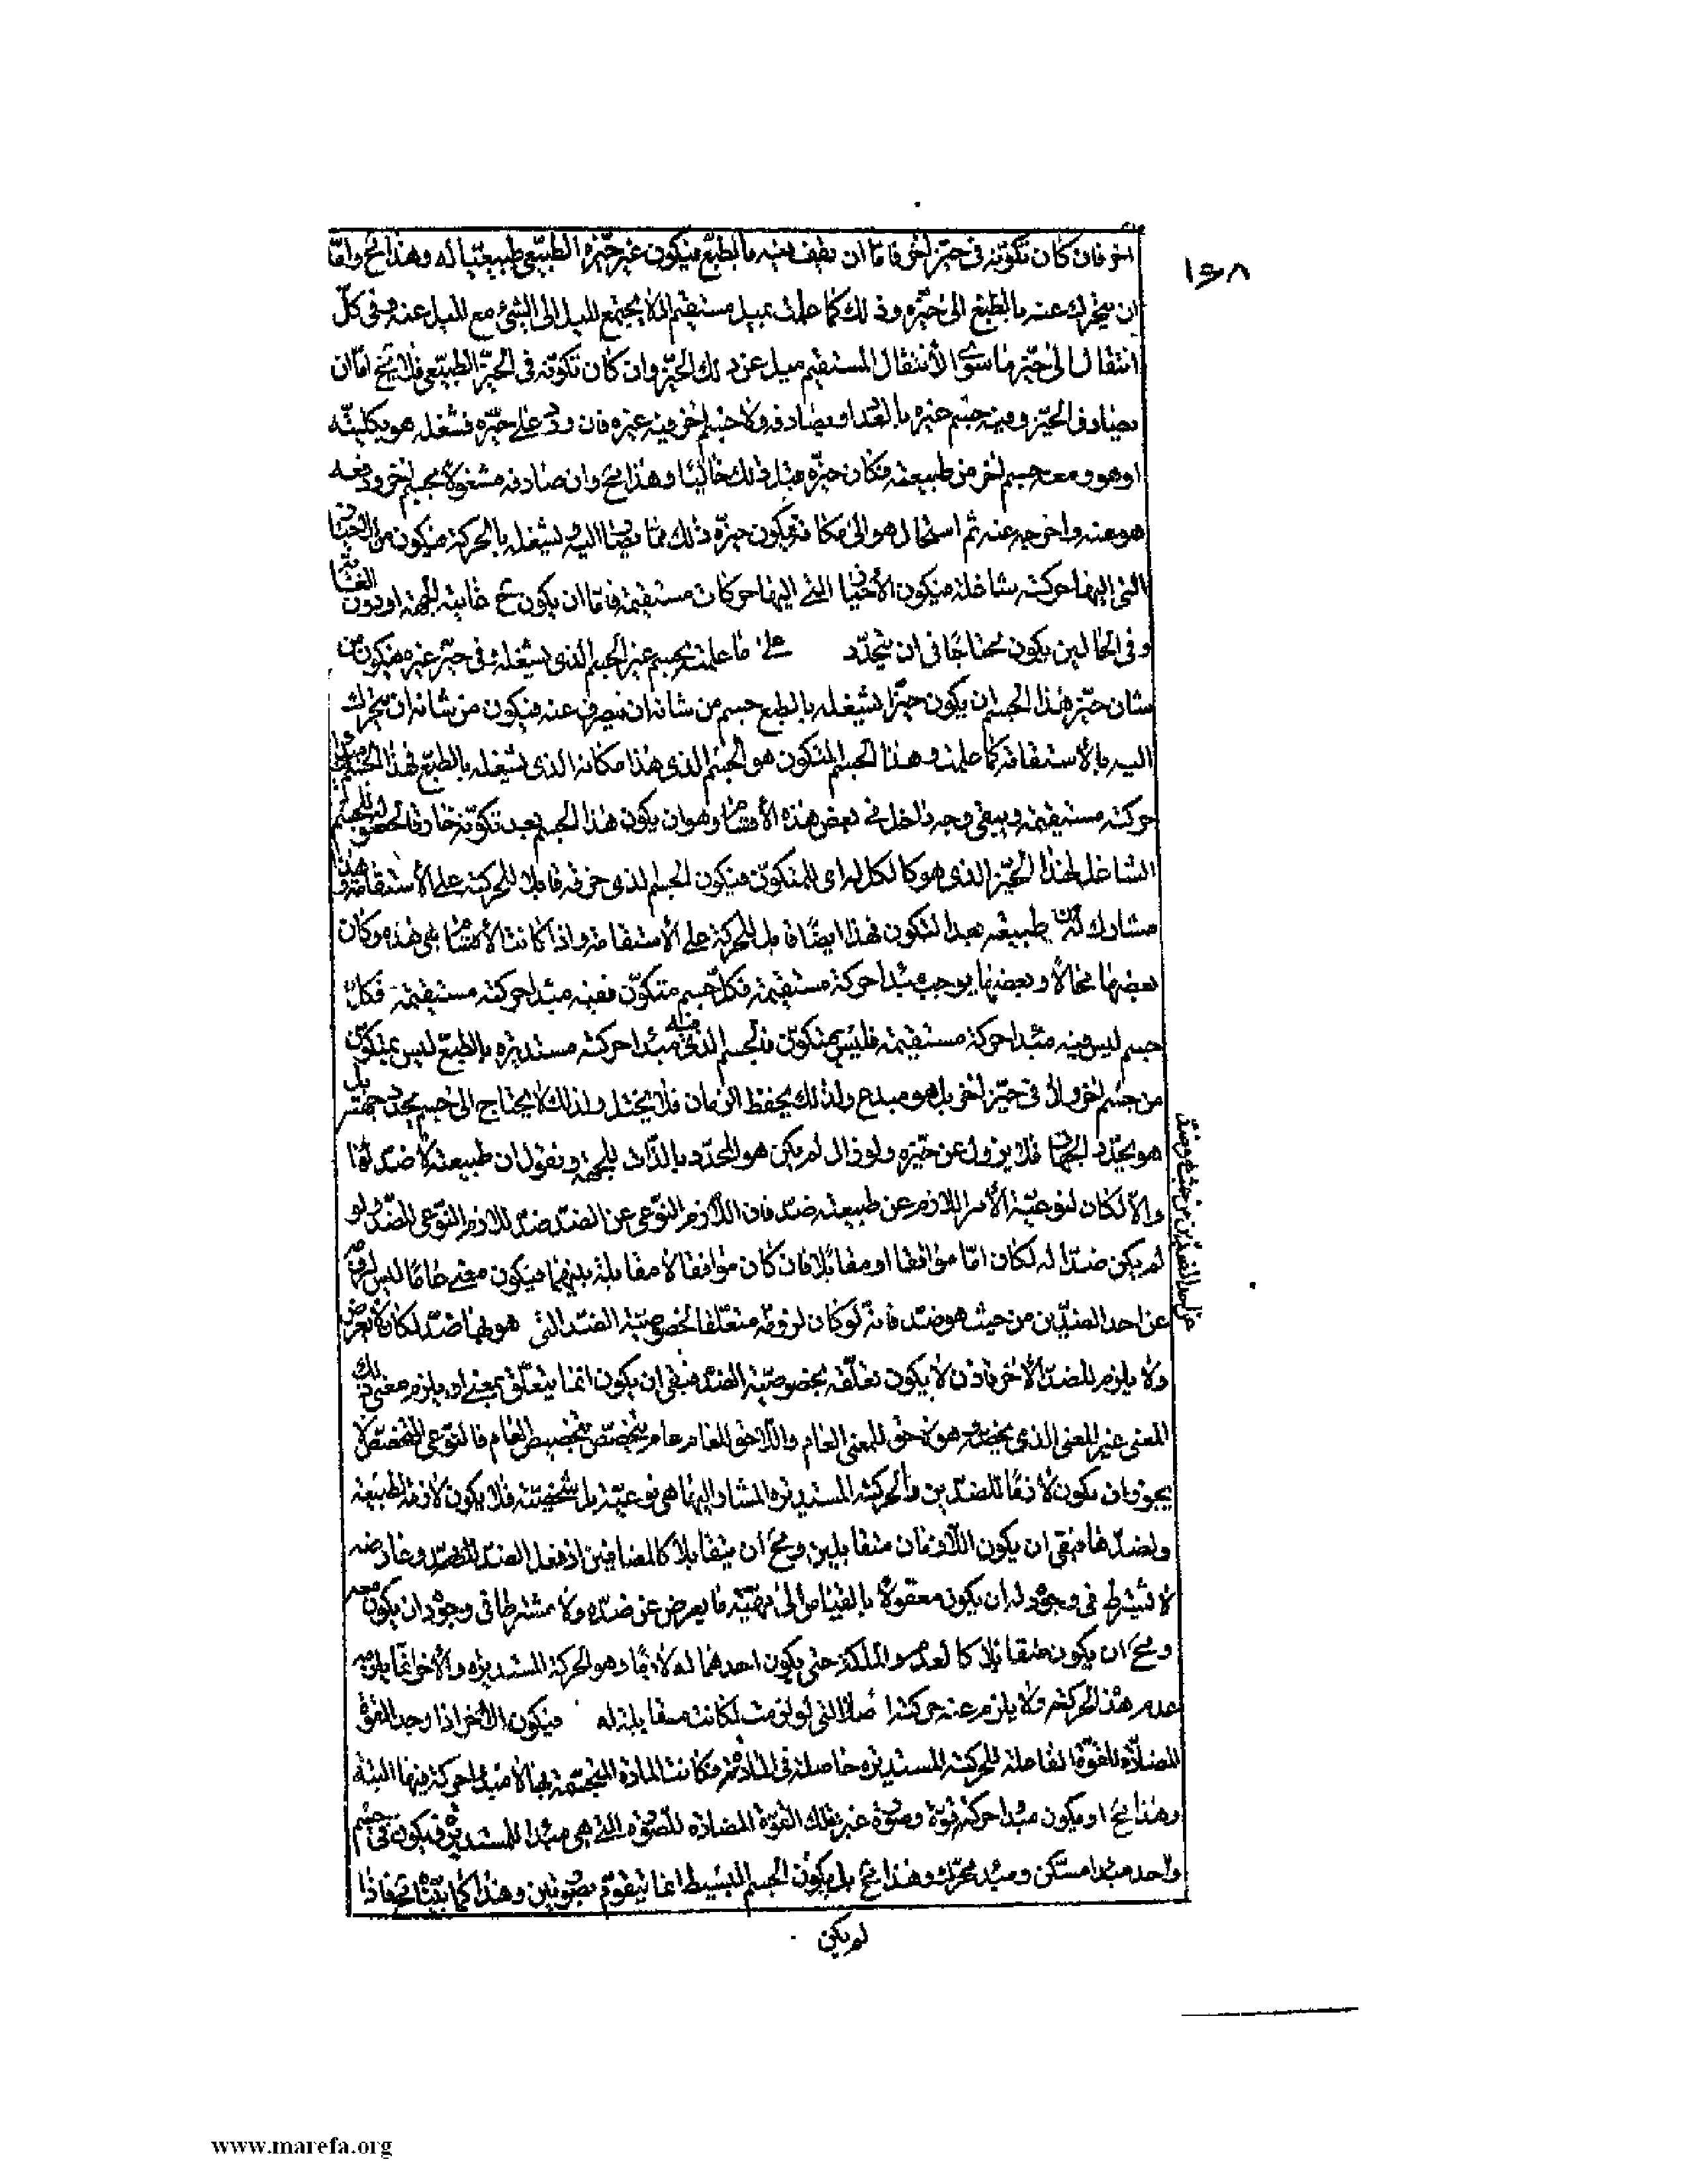 ١٦٨
اخر فان كان تكونه فى حيز اخر فاما ان يقف فيه بالطبع فيكون غير حيزه الطبيعى طبيعيا له وهذا مح واما
ان يتحرك عنه بالطبع الى حيزه وذلك كما علمت بميل مستقيم اذ لا يجتمع الميل الى الشئ مع الميل عنه وفى كل
انتقال الى حيز ما سوى الأنتقال المستقيم ميل عن ذلك الحيز وان كان تكونه فى الحيز الطبيعى فلا يخ اما ان
يصادف الحيز وفيه جسم غيره بالعدد او يصادفه ولا جسم اخر فيه غيره فان ورد على حيزه فشغله هو بكليته
او هو ومعه جسم اخر من طبيعته فكان حيزه قبل ذلك خاليا وهذا مح وان صادفه مشغولا بجسم اخر ودفعه
هو عنه واخرجه عنه ثم استحال هو الى مكانه فيكون حيزه ذلك مما يصا اليه ليشغله بالحركة فيكون من الاحياز
التى اليها حركته شاغلة فيكون الأحياز التى اليها حركات مستقيمة فاما ان يكون مح غايته الجهة او دون الغاية
وفى الحالين يكون محتاجا فى ان يتحدد على ما علمت بجسم غير الجسم الذى يشغله فى حيز غيره فيكون من
شان حيز هذا الجسم ان يكون حيزا يشغله بالطبع جسم من شانه ان ينصرف عنه فيكون من شانه ان يتحرك
اليه بالأستقامة كما علمت وهذا الجسم المتكون هو الجسم الذى هذا مكانه الذى يشغله بالطبع فهذا الجسم فيه مبدا
حركة مستقيمة ويبقى وجه داخل فى بعض هذه الأقسام وهو ان يكون هذا الجسم بعد تكونه خارقا لحصوله للجسم
الشاغل لهذا الحيز الذى هو كالكل له اى للمتكون فيكون الجسم الذى خرقه قابلا للحركة على الأستقامة وهذا
مشارك له فى طبيعته بعد التكون فهذا ايضا قابل للحركة على الأستقامة واذا كانت الأقسام هى هذه وكان
بعضها محالا وبعضها يوجب مبدا حركة مستقيمة فكل جسم متكون ففيه مبدا حركة مستقيمة فكل
جسم ليس فيه مبدا حركة مستقيمة فليس بمتكون فالجسم الذى فيه مبدا حركة مستديرة بالطبع ليس بمتكون
من جسم اخر ولا فى حيز اخر بل هو مبدع ولذلك يحفظ الزمان فلا يختل ولذلك لا يحتاج الى جسم يحدد جهته بل
هو يحدد الجهات فلا يزول عن حيزه ولو زال لم يكن هو المحدد بالذات للجهة ونقول ان طبيعته لا ضد لها
والا لكان لنوعية الأمر اللازم عن طبيعته ضد فان اللازم النوعى عن الضد ضد للازم النوعى للضد ولو
لم يكن ضدا له لكان اما موافقا او مقابلا فان كان موافقا لا مقابلة بينهما فيكون معنى عاما ليس لزومه
عن احد الضدين من حيث هو ضد فانه لو كان لزومه متعلقا بخصوصية الضد التى هو بها ضد لكان لا يعرض
ولا يلزم للضد الأخر فاذن لا يكون تعلقه بخصوصية الضد فبقى ان يكون انما يتعلق بمعنى او يلزم معنى ذلك
المعنى غير المعنى الذى يخصه هو لاحق للمعنى العام واللاحق للعام عام يتخصص بتخصيص العام فالنوعى المتخصص لا
يجوز ان يكون لازما للضدين والحركة المستديرة المشار اليها هى نوعية بل شخصية فلا يكون لازمة لطبيعة
ولضدها فبقى ان يكون اللازمان متقابلين ومح ان يتقابلا كالمضافين اذ فعل الضد للضد وعارضه
لا يشترط فى وجوده ان يكون معقولا بالقياس الى مهية ما يعرض عن ضده ولا مشترطا فى وجوده ان يكون معه
ومح ان يكون متقابلا كالعدم والملكة حتى يكون احدهما له لازما وهو الحركة المستديرة والأخر انما يلزمه
عدم هذه الحركة ولا يلزم عنه حركة اصلا التى لو لزمت لكانت مقابلة له فيكون الأخر اذا وجد القوة
المضادة للقوة الفاعلة للحركة المستديرة حاصلة فى المادة فكانت المادة المتجسمة بها لا مبدا حركة فيها البتة
وهذا مح او يكون مبدا حركة قوة وصورة غير تلك القوة المضادة للصورة التى هى مبدا للمستديرة فيكون فى جسم
واحد مبدا مسكن ومبدا محرك وهذا مح بل يكون الجسم البسيط انما يتقوم بصورتين وهذا كما بيناه مح فاذا
لم يكن
عن احد الضدين من حيث هو ضد
www.marefa.org